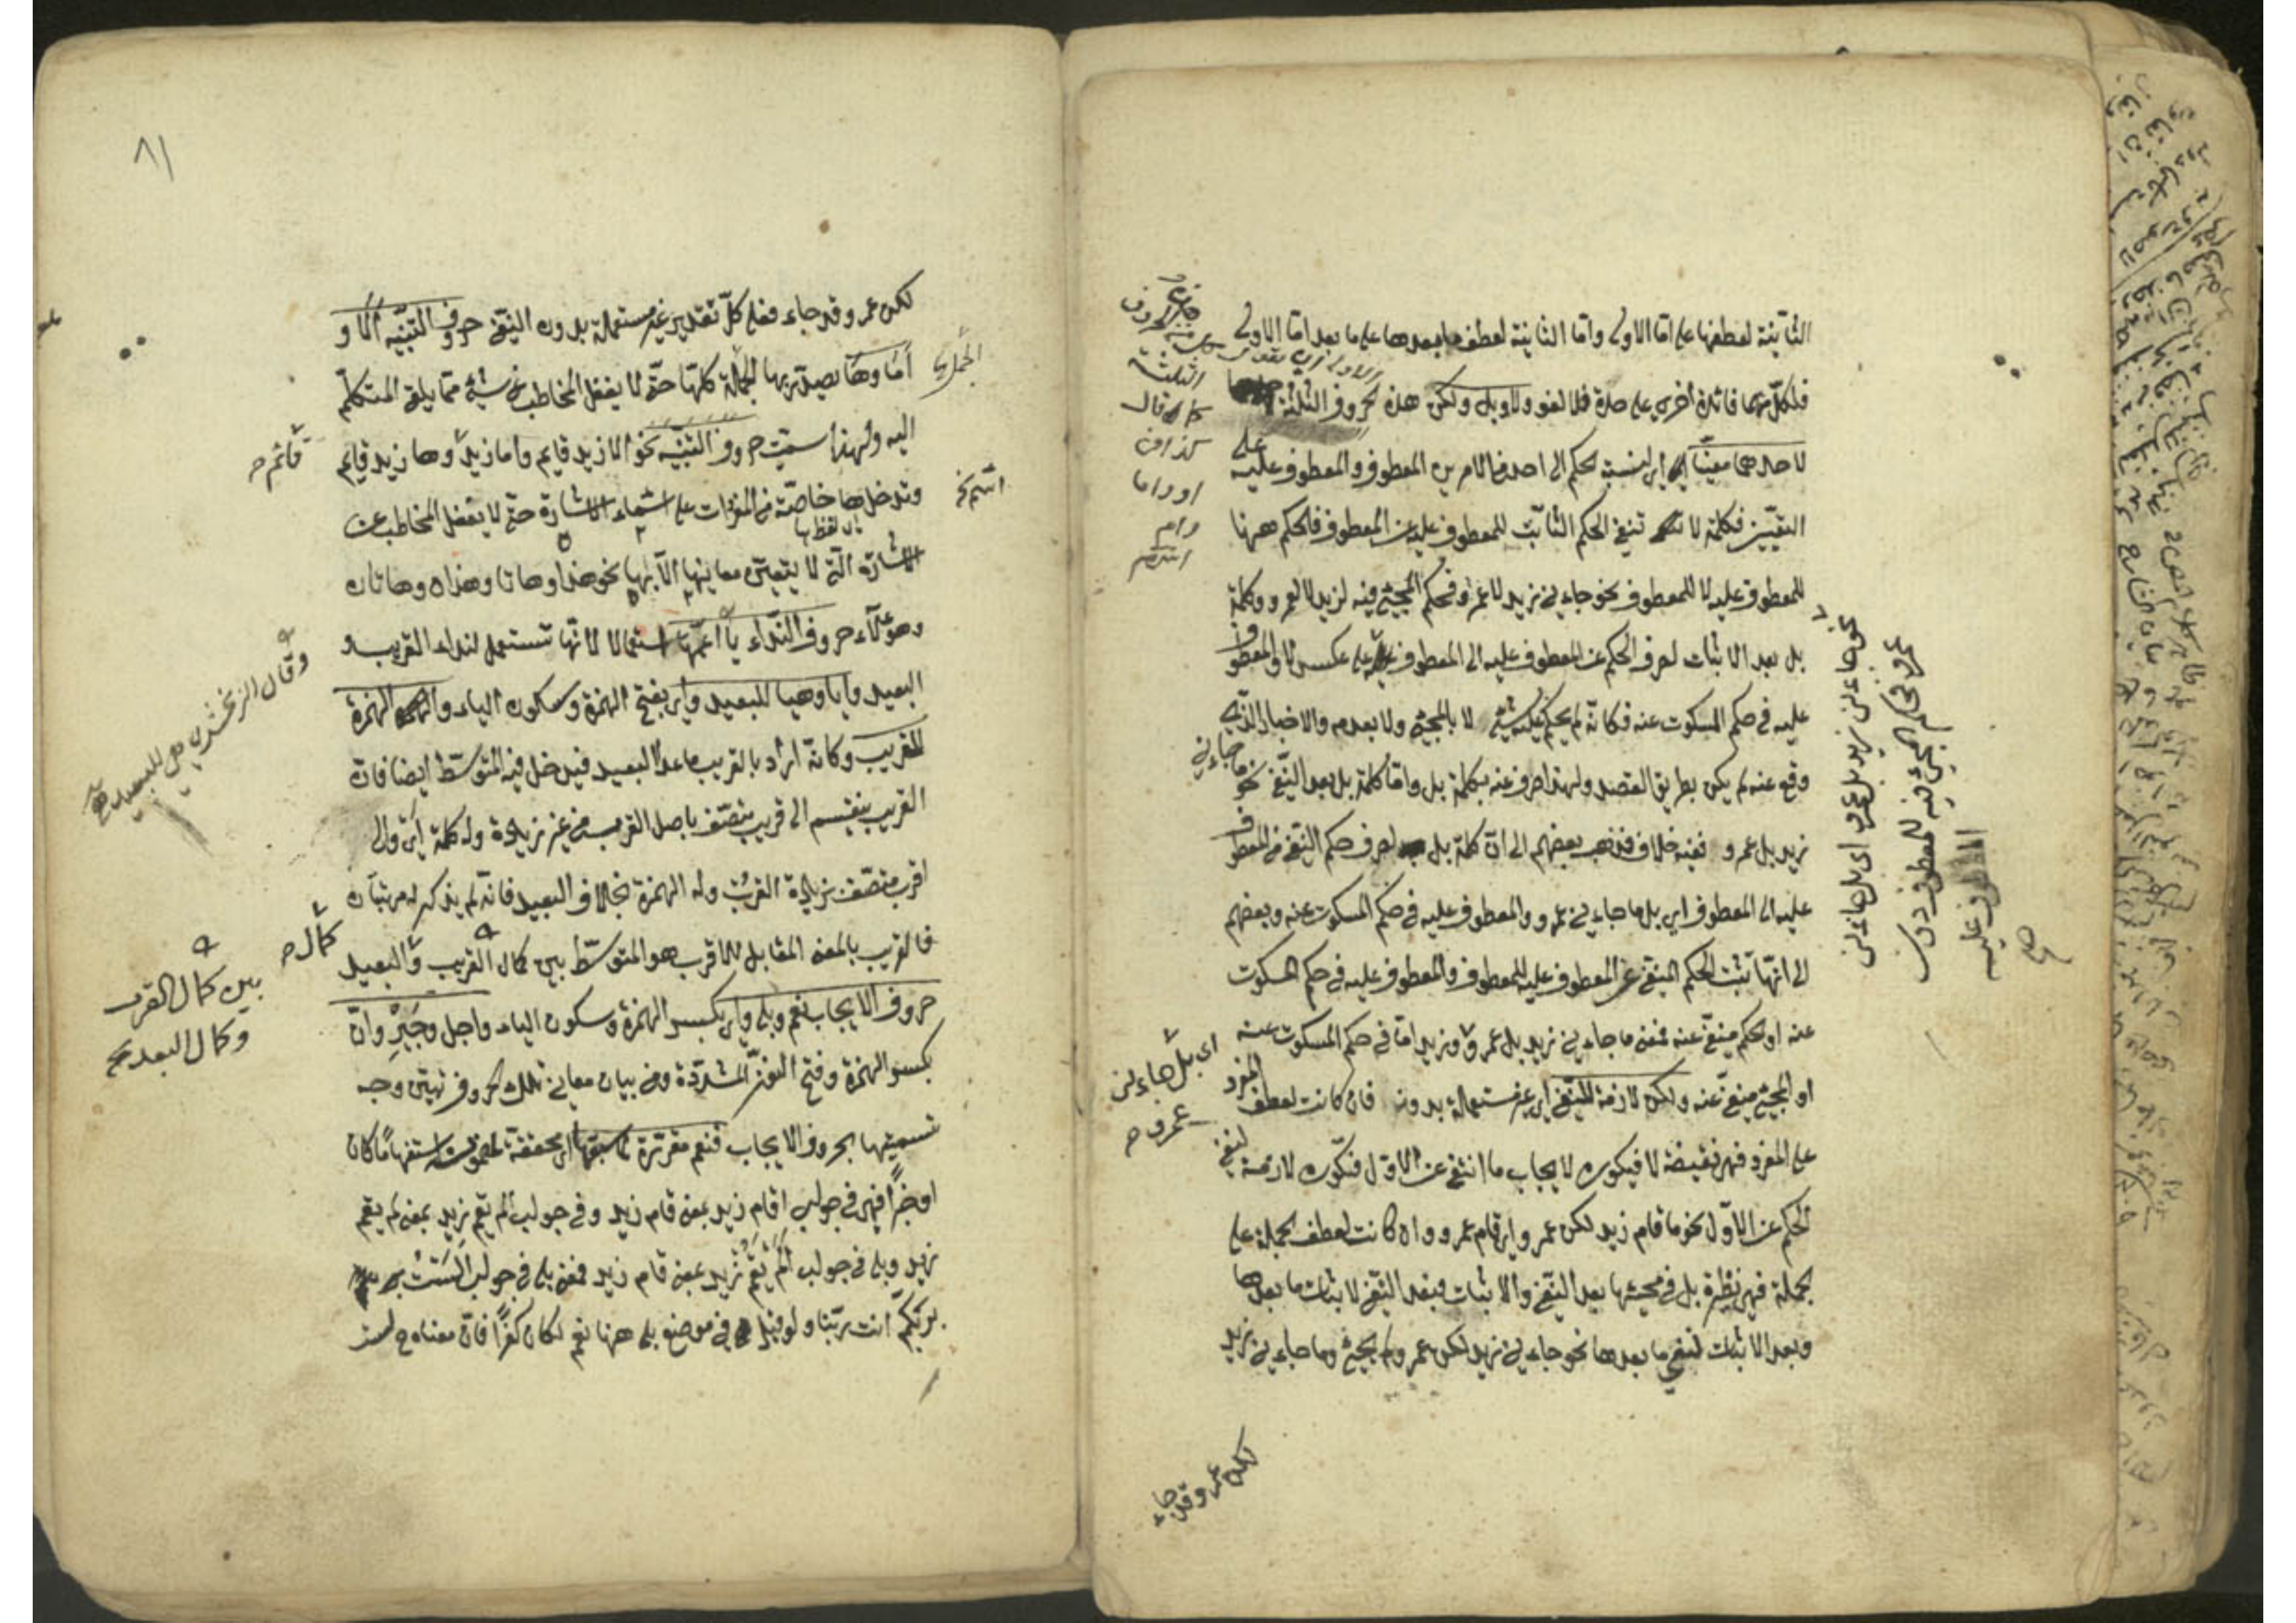 الثانية لعطفها على اما الاولى واما الثانية لعطف ما بعدها على ما بعد اما الاولى
فلكل منها فائدة اخرى على حدة فلا لغو ولا وبل ولكن هذه الحروف الثلثة
لاحدهما معينا اى لنسبة الحكم الى احد الامرين المعطوف والمعطوف عليه على
التعيين فكلمة لا تنفى الحكم الثابت للمعطوف عليه عن المعطوف فالحكم ههنا
للمعطوف عليه لا للمعطوف نحو جاءنى زيد لا عمرو فحكم المجئ فيه لزيد لا لعمرو وكلمة
بل بعد الاثبات لصرف الحكم عن المعطوف عليه الى المعطوف على عكس لا والمعطوف
عليه فى حكم المسكوت عنه فكانه لم يحكم عليه بشئ لا بالمجئ ولا بعدمه والاخبار الذى
وقع عنه لم يكن بطريق القصد ولهذا صرف عنه بكلمة بل واما كلمة بل بعد النفى نحو ما جاءنى
زيد بل عمرو ففيه خلاف فذهب بعضهم الى ان كلمة بل لصرف حكم النفى من المعطوف
عليه الى المعطوف اى بل ما جاءنى عمرو والمعطوف عليه فى حكم المسكوت عنه وبعضهم
الى انها تثبت الحكم المنفى عن المعطوف عليه للمعطوف والمعطوف عليه فى حكم المسكوت
عنه او الحكم منفى عنه فمعنى ما جاءنى زيد بل عمرو وزيد اما فى حكم المسكوت عنه
او المجئ منفى عنه ولكن لازمة للنفى اى غير مستعملة بدونه فان كانت لعطف المفرد
على المفرد فهى نقيضة لا فيكون لايجاب ما انتفى عن الاول فتكون لازمة لنفى
الحكم عن الاول نحو ما قام زيد لكن عمرو اى قام عمرو وان كانت لعطف الجملة على
الجملة فهى نظيرة بل فى مجيئها بعد النفى والاثبات فبعد النفى لاثبات ما بعدها
وبعد الاثبات لنفى ما بعدها نحو جاءنى زيد لكن عمرو لم يجئ وما جاءنى زيد
لكن عمرو قد جاء
الثلثة
قال
او واما
وام
اى بل جاءنى
عمرو
نحو جاءنى زيد بل عمرو اى بل جاءنى
عمرو فحكم المجئ فيه للمعطوف دون
المعطوف عليه
صح
٨١
لكن عمرو قد جاء فعلى كل تقدير غير مستعملة بدون النفى حروف التنبيه الا و
اما وها يصدر بها الجملة كلها حتى لا يغفل المخاطب عن شئ مما يلقى المتكلم
اليه ولهذا سميت حروف التنبيه نحو الا زيد قايم واما زيد وها زيد قايم
وتدخل ها خاصة من المفردات على اسماء الاشارة حتى لا يغفل المخاطب عن
الاشارة التى لا يتعين معانيها الا بها نحو هذا وهاتا وهذان وهاتان
وهؤلاء حروف النداء يا اعمها استعمالا لانها تستعمل لنداء القريب و
البعيد وايا وهيا للبعيد واى بفتح الهمزة وسكون الياء والهمزة
للقريب وكانه اراد بالقريب ما عدا البعيد فيدخل فيه المتوسط ايضا فان
القريب ينقسم الى قريب متصف باصل القرب من غير زيادة وله كلمة اى والى
اقرب متصف بزيادة القرب وله الهمزة بخلاف البعيد فانه لم يذكر له مرتبتان
فالقريب بالمعنى المقابل للاقرب هو المتوسط بين كمال القريب والبعيد
حروف الايجاب نعم وبلى واى بكسر الهمزة وسكون الياء واجل وجير وان
بكسر الهمزة وفتح النون المشددة وفى بيان معانى تلك الحروف تبيين وجه
تسميتها بحروف الايجاب فنعم مقررة لما سبقها اى محققة لمضمونه استفهاما كان
او خبرا فهى فى جواب اقام زيد بمعنى قام زيد وفى جواب الم يقم زيد بمعنى لم يقم
زيد وبلى فى جواب الم يقم زيد بمعنى قام زيد فمعنى بلى فى جواب الست
بربكم انت ربنا ولو قيل فى موضع بلى ههنا نعم لكان كفرا فان معناه ح لست
قائم
وقال الزمخشرى هى للبعيد
كمال
بين كمال القرب
وكمال البعد